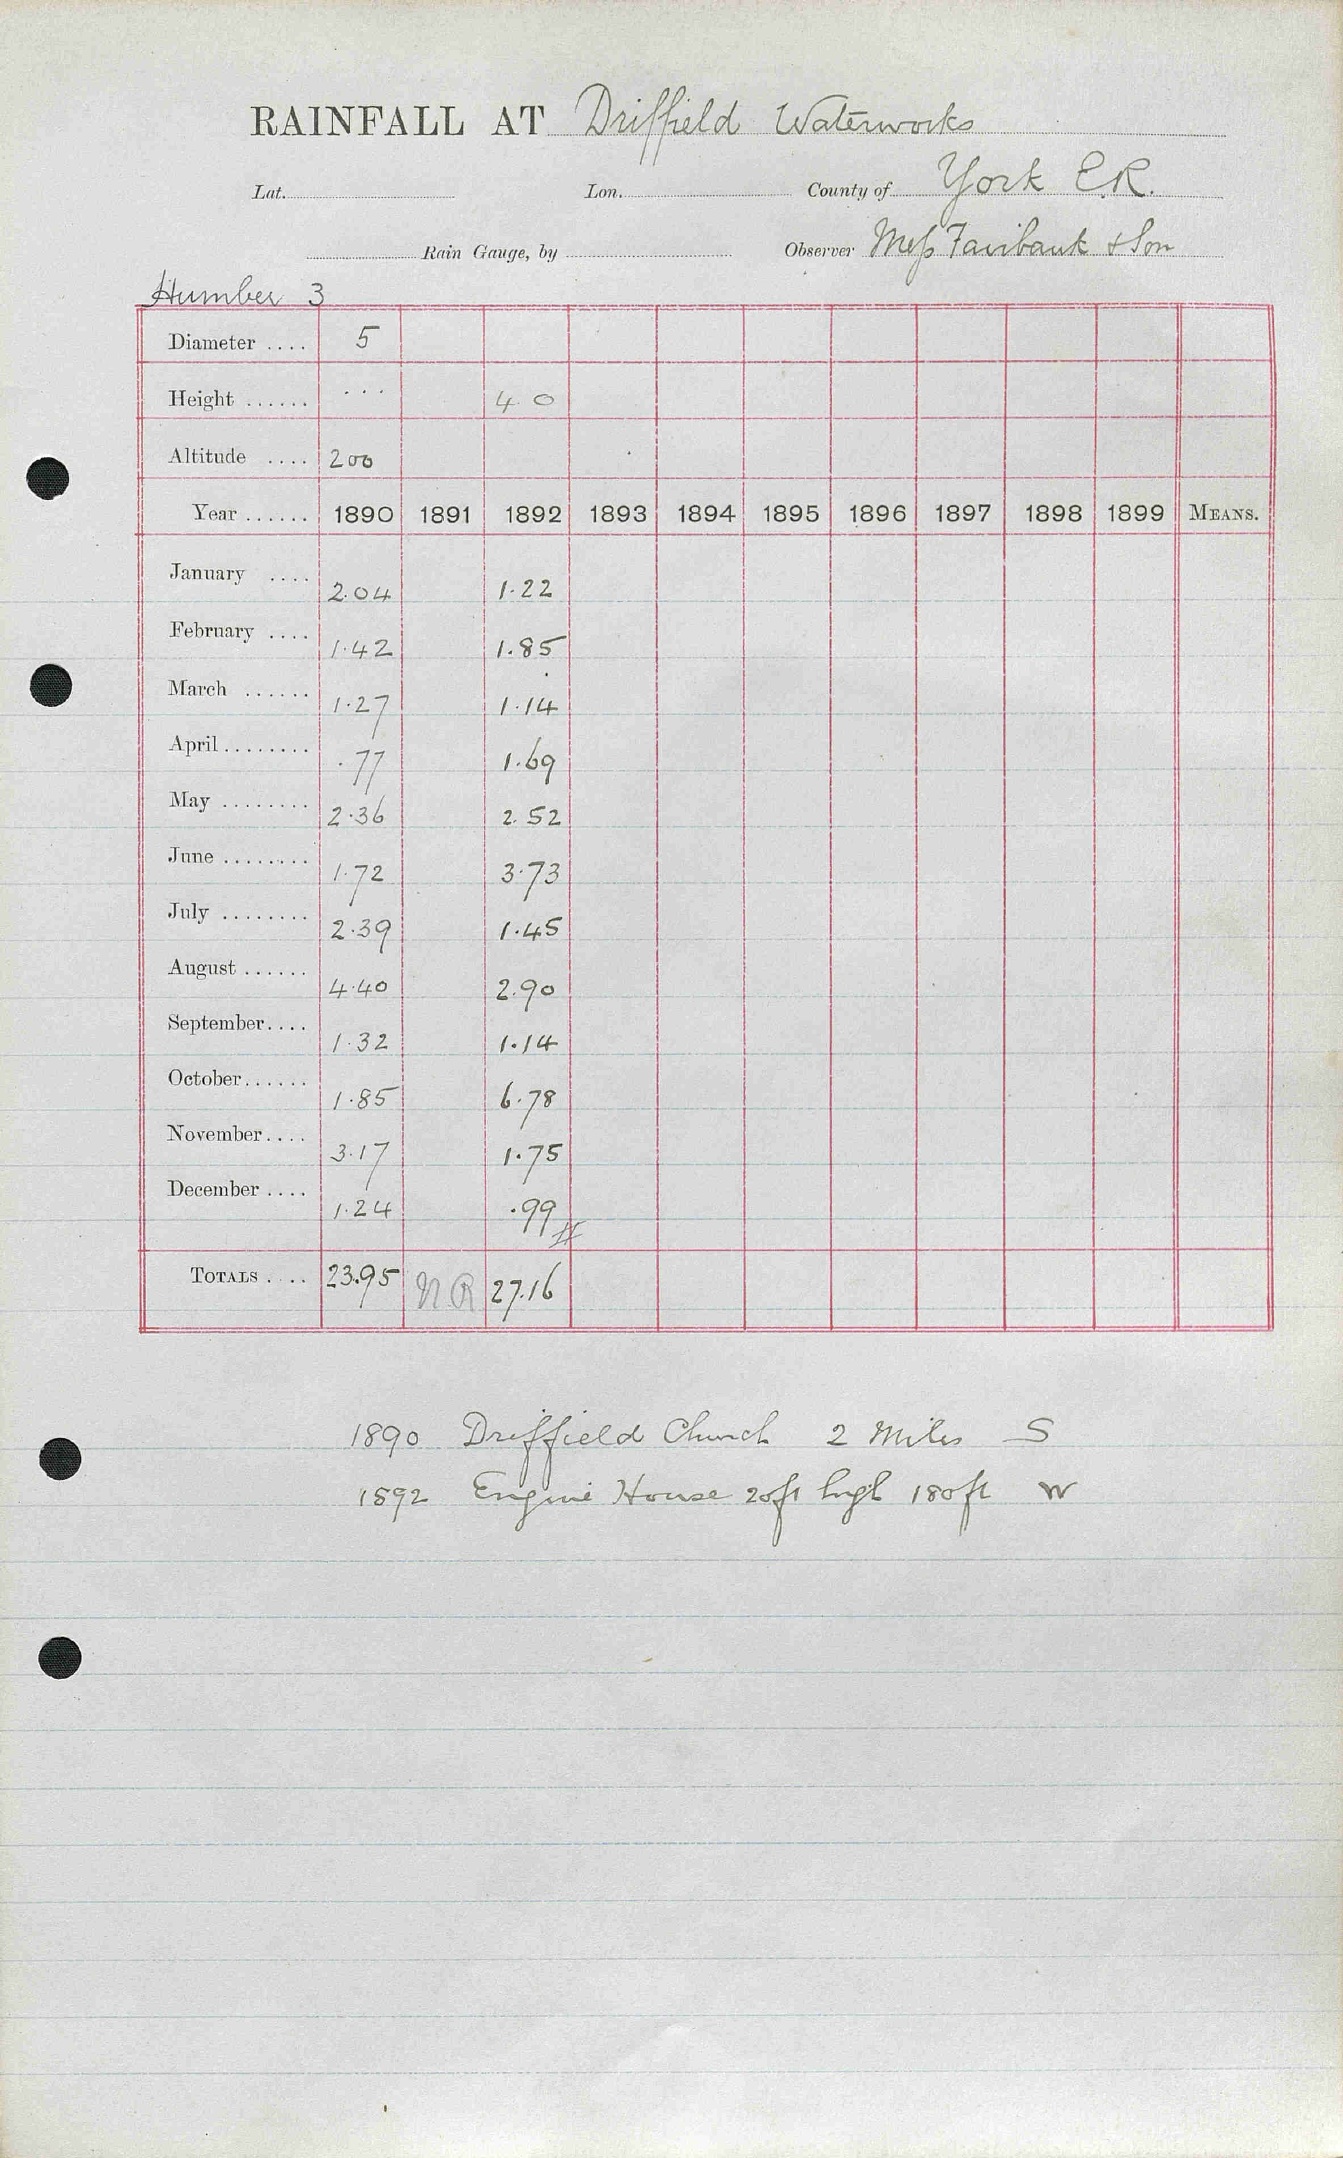 RAINFALL AT Driffield Waterworks
Lat. Lon. County of York E.R.
Rain Gauge, by Observer Mess Fairbank & Son
Humber 3
Diameter .... 5
Height ...... ... 4 0
Altitude .... 200
Year ...... 1890 1891 1892 1893 1894 1895 1896 1897 1898 1899 MEANS.
January .... 2.04 1.22
February .... 1.42 1.85
March ...... 1.27 1.14
April ........ .77 1.69
May ........ 2.36 2.52
June ........ 1.72 3.73
July ........ 2.39 1.45
August ...... 4.40 2.90
September.... 1.32 1.14
October...... 1.85 6.78
November.... 3.17 1.75
December .... 1.24 .99
TOTALS .... 23.95 NR 27.16
1890 Driffield Church 2 Miles S
1892 Engine House 20ft high 180ft W